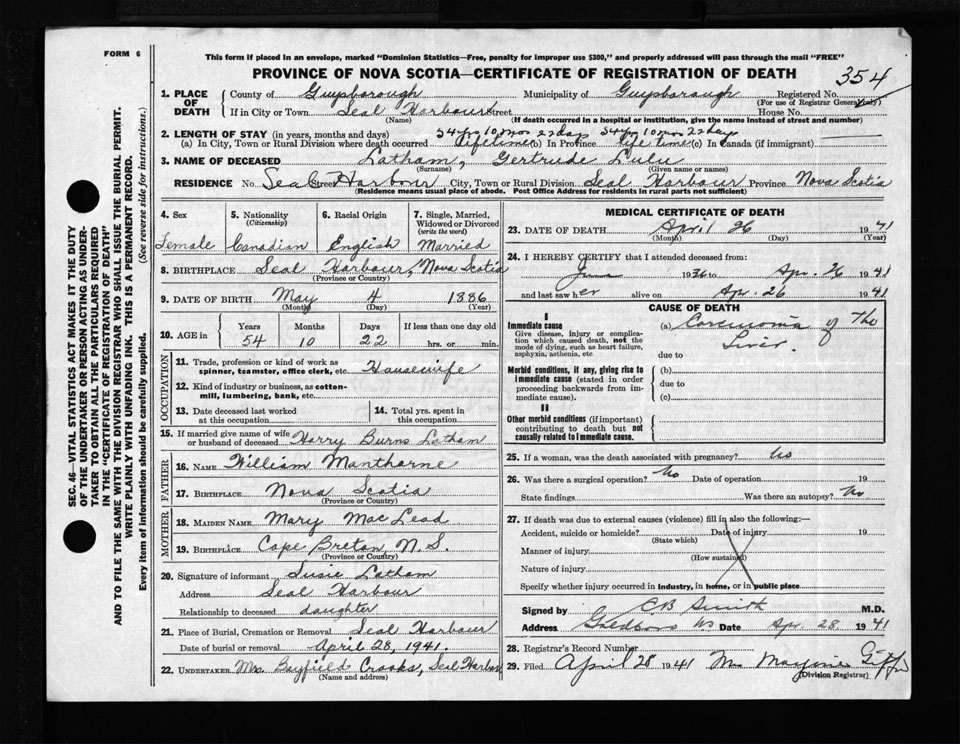 FORM 6
This form if placed in an envelope, marked "Dominion Statistics—Free, penalty for improper use $300," and properly addressed will pass through the mail "FREE"
PROVINCE OF NOVA SCOTIA—CERTIFICATE OF REGISTRATION OF DEATH
354
1. PLACE OF DEATH
County of Guysborough Municipality of Guysborough Registered No.
(For use of Registrar General only)
If in City or Town Seal Harbour Street House No.
(Name) (If death occurred in a hospital or institution, give the name instead of street and number)
2. LENGTH OF STAY (in years, months and days) 54 yrs 10 mos 22 days 54 yrs 10 mos 22 days
(a) In City, Town or Rural Division where death occurred lifetime (b) In Province life time (c) In Canada (if immigrant)
3. NAME OF DECEASED Latham, Gertrude Lulu
(Surname) (Given name or names)
RESIDENCE No. Seal Street Harbour City, Town or Rural Division Seal Harbour Province Nova Scotia
(Residence means usual place of abode. Post Office Address for residents in rural parts not sufficient)
4. Sex
Female
5. Nationality
(Citizenship)
Canadian
6. Racial Origin
English
7. Single, Married, Widowed or Divorced
(write the word)
Married
8. BIRTHPLACE Seal Harbour, Nova Scotia
(Province or Country)
9. DATE OF BIRTH May 4 1886
(Month) (Day) (Year)
10. AGE in
Years Months Days If less than one day old
54 10 22 hrs. or min.
OCCUPATION
11. Trade, profession or kind of work as
spinner, teamster, office clerk, etc. Housewife
12. Kind of industry or business, as cotton-
mill, lumbering, bank, etc.
13. Date deceased last worked
at this occupation
14. Total yrs. spent in
this occupation
15. If married give name of wife
or husband of deceased Harry Burns Latham
FATHER
16. NAME William Manthorne
17. BIRTHPLACE Nova Scotia
(Province or Country)
MOTHER
18. MAIDEN NAME Mary Mac Leod
19. BIRTHPLACE Cape Breton N.S.
(Province or Country)
20. Signature of informant Susie Latham
Address Seal Harbour
Relationship to deceased daughter
21. Place of Burial, Cremation or Removal Seal Harbour
Date of burial or removal April 28, 1941.
22. UNDERTAKER Mrs. Bayfield Crooks, Seal Harbour
(Name and address)
MEDICAL CERTIFICATE OF DEATH
23. DATE OF DEATH April 26 1941
(Month) (Day) (Year)
24. I HEREBY CERTIFY that I attended deceased from:
June 1936 to Apr. 26 1941
and last saw her alive on Apr. 26 1941
CAUSE OF DEATH
I
Immediate cause
Give disease, injury or complication which caused death, not the mode of dying, such as heart failure, asphyxia, asthenia, etc
(a) Carcinoma of the
Liver.
due to
Morbid conditions, if any, giving rise to immediate cause (stated in order proceeding backwards from immediate cause).
(b)
due to
(c)
II
Other morbid conditions (if important) contributing to death but not causally related to immediate cause.
25. If a woman, was the death associated with pregnancy? No
26. Was there a surgical operation? No Date of operation 19
State findings Was there an autopsy? No
27. If death was due to external causes (violence) fill in also the following:—
Accident, suicide or homicide? Date of injury 19
(State which)
Manner of injury
(How sustained)
Nature of injury
Specify whether injury occurred in industry, in home, or in public place
Signed by C B Smith M.D.
Address Goldboro NS Date Apr. 28 1941
28. Registrar's Record Number
29. Filed April 28 1941 Mrs
(Division Registrar)
SEC. 46—VITAL STATISTICS ACT MAKES IT THE DUTY
OF THE UNDERTAKER OR PERSON ACTING AS UNDER-
TAKER TO OBTAIN ALL THE PARTICULARS REQUIRED
IN THE "CERTIFICATE OF REGISTRATION OF DEATH"
AND TO FILE THE SAME WITH THE DIVISION REGISTRAR WHO SHALL ISSUE THE BURIAL PERMIT.
WRITE PLAINLY WITH UNFADING INK. THIS IS A PERMANENT RECORD.
Every item of information should be carefully supplied. (See reverse side for instructions.)